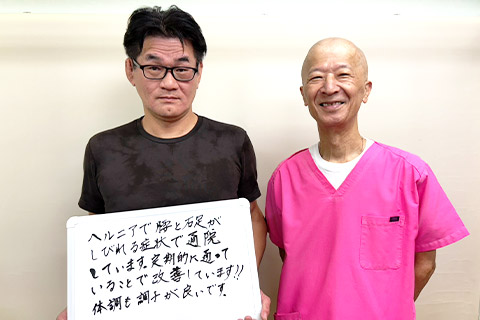 ヘルニアで腰と右足が
しびれる症状で通院
しています。定期的に通って
いることで改善しています!!
体調も調子が良いです。